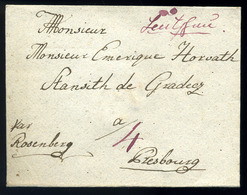 Monsieur
Monsieur Emerique Horvath
Stansith de Gradecz
a
par
Rosenberg
4
Presbourg